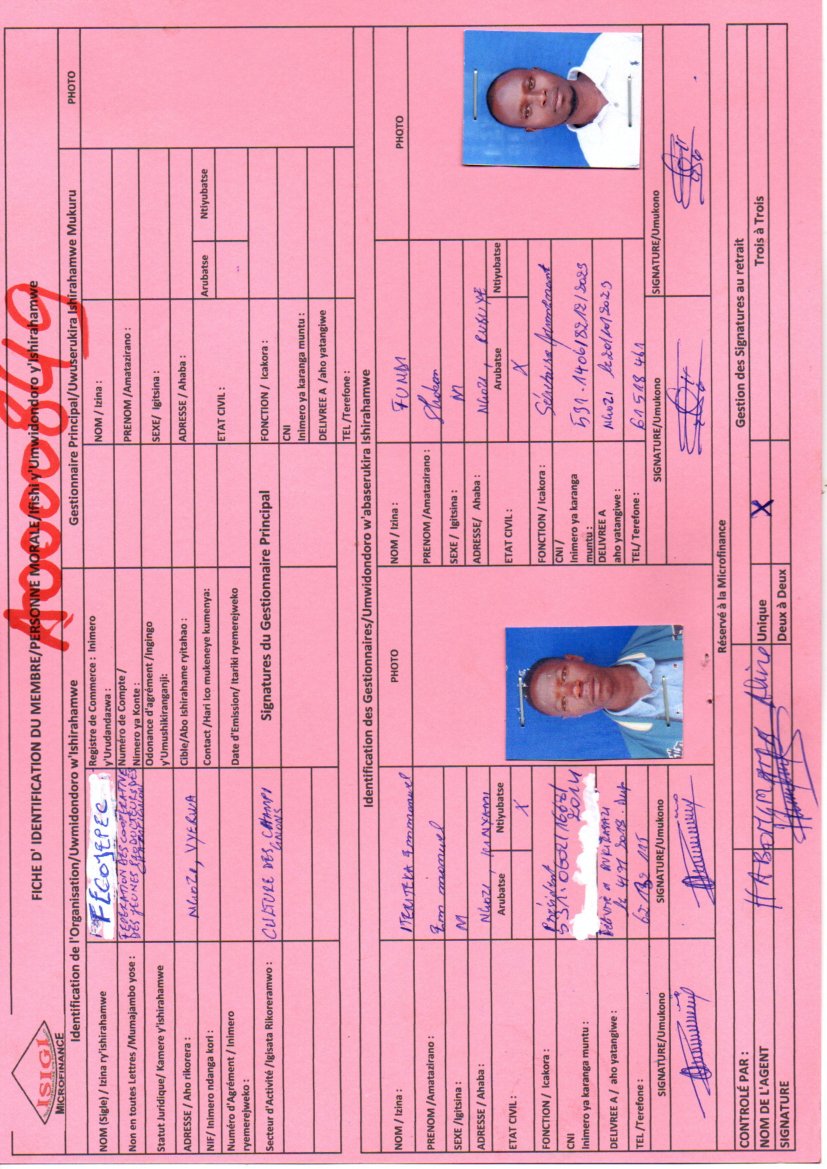 ISIGI
MICROFINANCE
FICHE D' IDENTIFICATION DU MEMBRE/PERSONNE MORALE/Ifishi y'Umwidondoro y'Ishirahamwe
A0000849
Identification de l'Organisation/Uwmidondoro w'Ishirahamwe
NOM (Sigle) / Izina ry'ishirahamwe
FECOJEPER
Non en toutes Lettres /Mumajambo yose :
FEDERATION DES COOPERATIVE
DES JEUNES PRODUCTEURS DES
Statut Juridique/ Kamere y'ishirahamwe
ADRESSE / Aho rikorera :
NGOZI, VYERWA
NIF/ Inimero ndanga kori :
Numéro d'Agrément / Inimero
ryemerejweko :
Secteur d'Activité /Igisata Rikoreramwo :
CULTURE DES CHAMPI
GNONS
Registre de Commerce : Inimero
y'Urudandazwa :
Numéro de Compte /
Nimero ya Konte :
Odonance d'agrément /Ingingo
y'Umushikiranganji:
Cible/Abo Ishirahame ryitahao :
Contact /Hari ico mukeneye kumenya:
Date d'Emission/ Itariki ryemerejweko
Signatures du Gestionnaire Principal
Gestionnaire Principal/Uwuserukira Ishirahamwe Mukuru
PHOTO
NOM / Izina :
PRENOM /Amatazirano :
SEXE/ Igitsina :
ADRESSE / Ahaba :
ETAT CIVIL :
Arubatse
Ntiyubatse
FONCTION / Icakora :
CNI
Inimero ya karanga muntu :
DELIVREE A /aho yatangiwe
TEL /Terefone :
Identification des Gestionnaires/Umwidondoro w'abaserukira Ishirahamwe
NOM / Izina :
ITERITEKA Emmanuel
PHOTO
PRENOM /Amatazirano :
Emmanuel
SEXE /Igitsina :
M
ADRESSE / Ahaba :
Ngozi, KINYAMI
ETAT CIVIL :
Arubatse
Ntiyubatse
X
FONCTION / Icakora :
Président
CNI
Inimero ya karanga muntu :
DELIVREE A / aho yatangiwe :
TEL /Terefone :
SIGNATURE/Umukono
SIGNATURE/Umukono
NOM / Izina :
FUNDI
PHOTO
PRENOM /Amatazirano :
SEXE / Igitsina :
M
ADRESSE/ Ahaba :
Ngozi, RUBUYE
ETAT CIVIL :
Arubatse
Ntiyubatse
X
FONCTION / Icakora :
CNI /
Inimero ya karanga
muntu :
531.1406/8212/2023
DELIVREE A
aho yatangiwe :
TEL/ Terefone :
61 518 461
SIGNATURE/Umukono
SIGNATURE/Umukono
Réservé à la Microfinance
CONTROLÉ PAR :
NOM DE L'AGENT
SIGNATURE
Gestion des Signatures au retrait
Unique
X
Trois à Trois
Deux à Deux